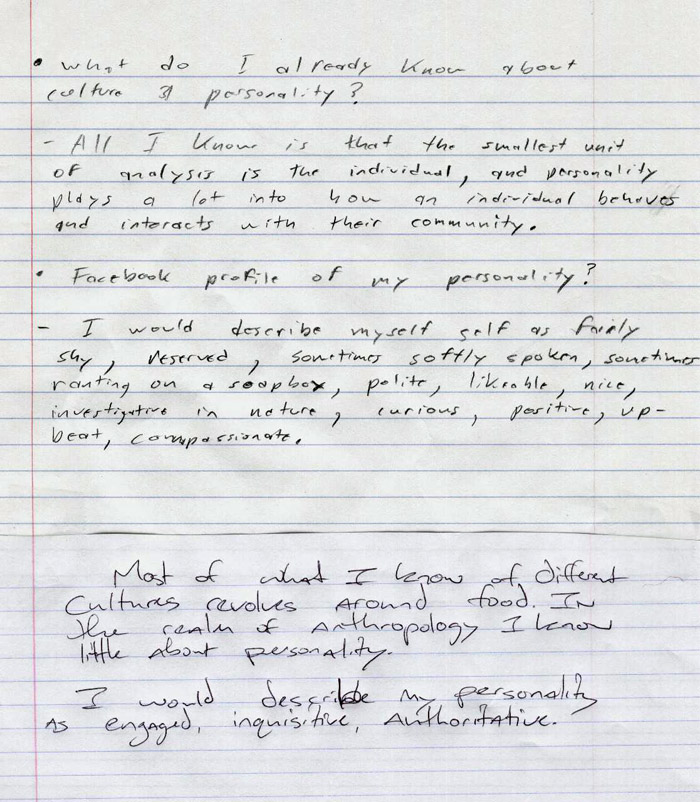 • what do I already know about
culture & personality?
- All I know is that the smallest unit
of analysis is the individual, and personality
plays a lot into how an individual behaves
and interacts with their community.
• Facebook profile of my personality?
- I would describe myself self as fairly
shy, reserved, sometimes softly spoken, sometimes
ranting on a soapbox, polite, likeable, nice,
investigative in nature, curious, positive, up-
beat, compassionate.
Most of what I know of different
Cultures revolves around food. In
the realm of Anthropology I know
little about personality.
I would describe my personality
as engaged, inquisitive, Authoritative.